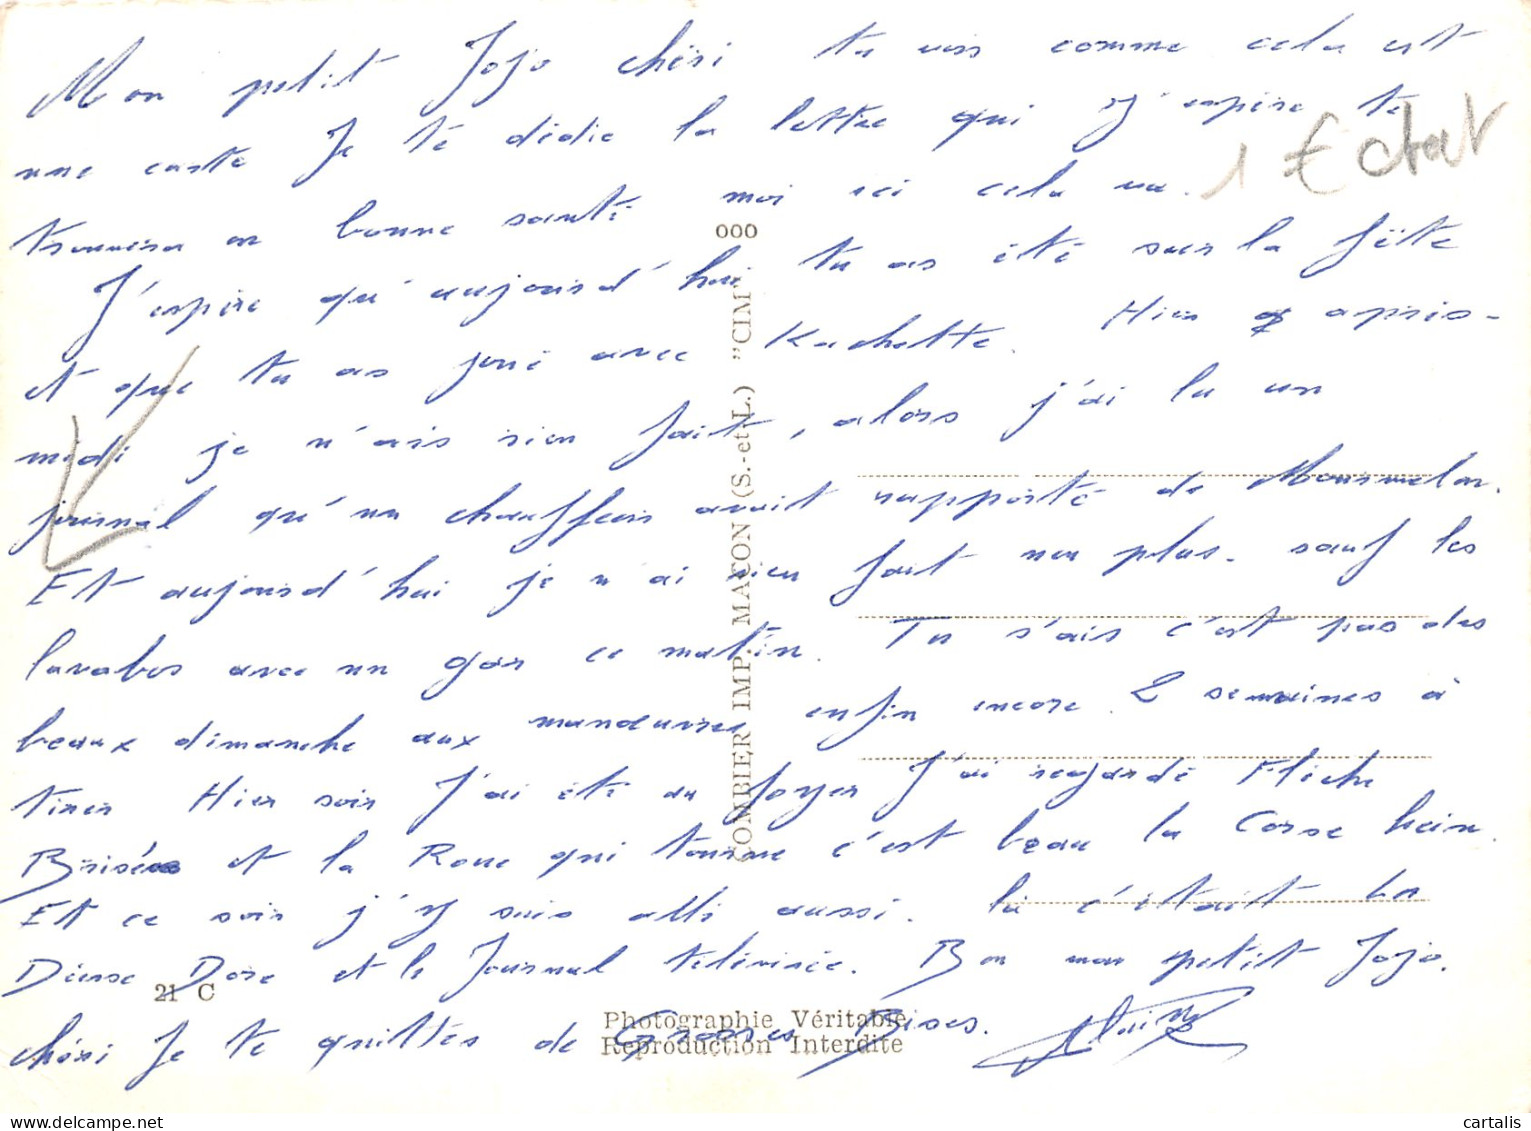 Mon petit Jojo chéri tu vois comme cela est
une carte Je te dédie la lettre qui j'espère te
trouvera en bonne santé moi ici cela va.
J'espère qu'aujourd'hui tu as été sur la fête
et que tu as joué avec Kachette. Hier apris-
midi je n'ais rien fait, alors j'ai lu un
journal qu'un chauffeur avait rapporté de Mourmelon.
Et aujourd'hui je n'ai rien fait non plus. sauf les
lavabos avec un gar ce matin. Tu s'ais c'est pas des
beaux dimanche aux manœuvres enfin encore 2 semaines à
tirer Hier soir J'ai été au foyer J'ai regardé Flèche
Brisée et la Roue qui tourne c'est beau la Corse hein.
Et ce soir j'y suis allé aussi. là c'était La
Déesse Dore et le Journal télévisée. Bon mon petit Jojo.
chéri Je te quittes de Grosses Bises. Alain
1 € état
000
COMBIER IMP. MACON (S.-et-L.) "CIM"
21 C
Photographie Véritable
Reproduction Interdite
delcampe.net
cartalis